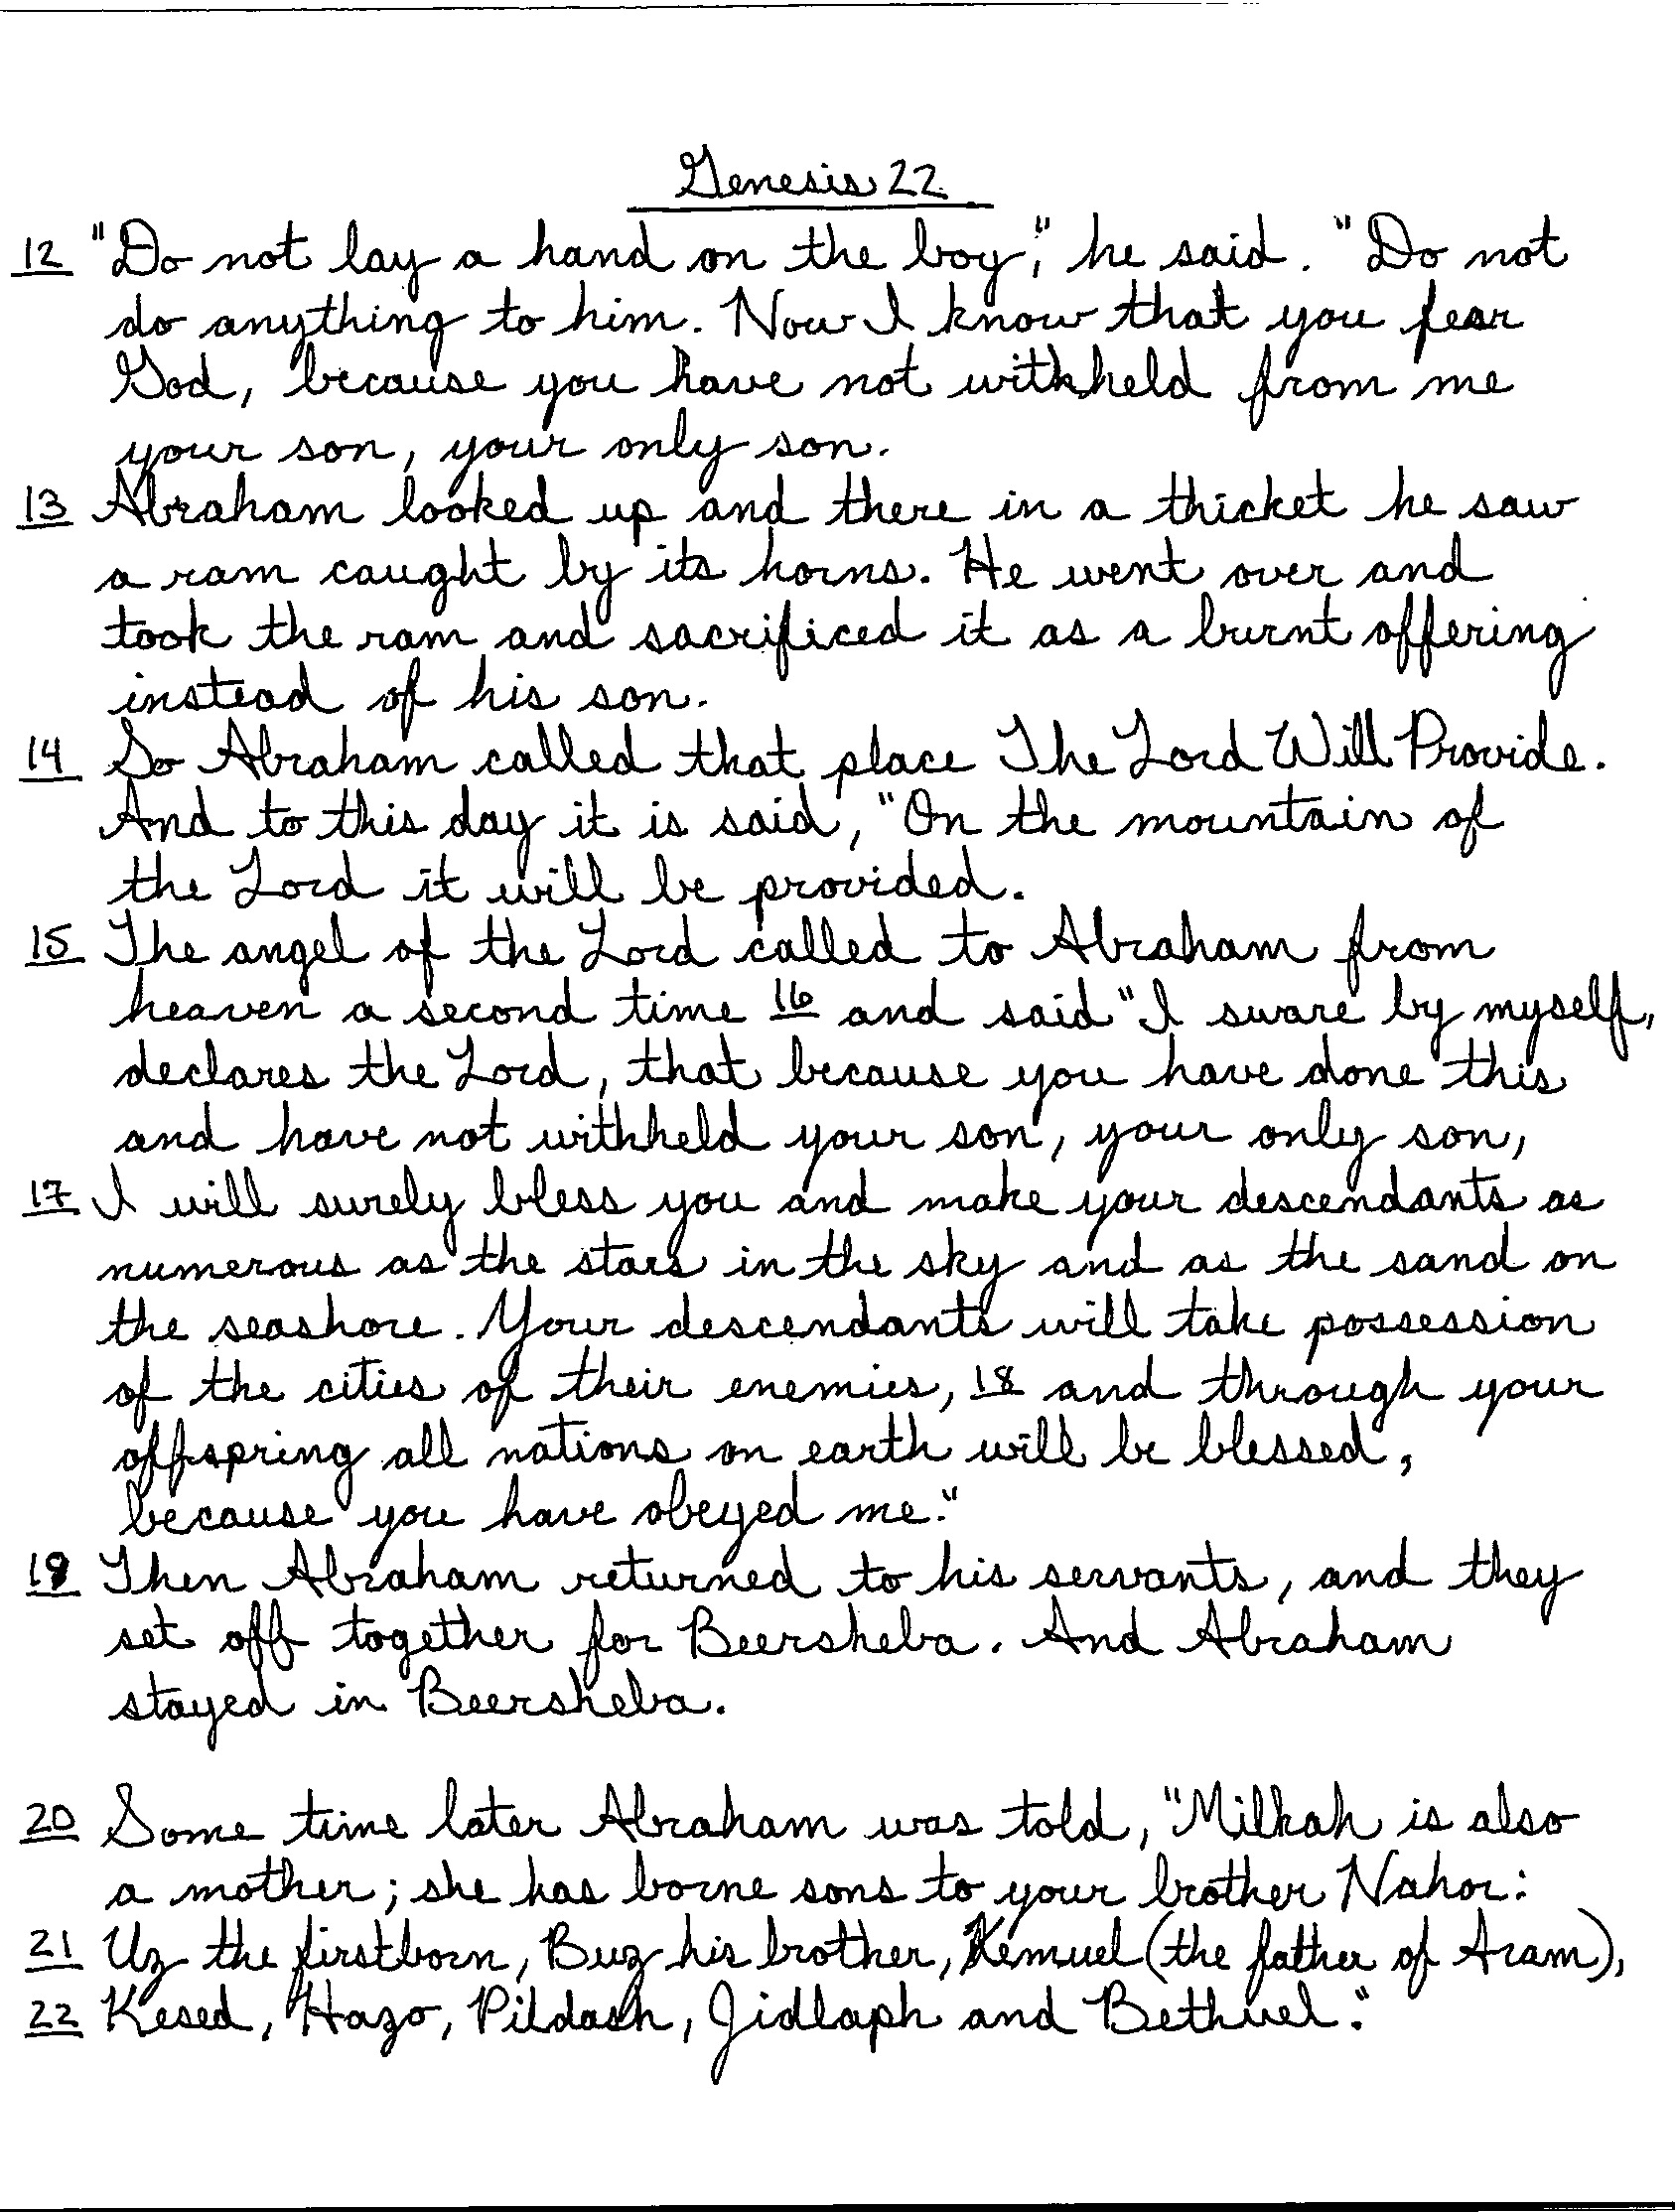 Genesis 22
12 "Do not lay a hand on the boy," he said. "Do not
do anything to him. Now I know that you fear
God, because you have not withheld from me
your son, your only son.
13 Abraham looked up and there in a thicket he saw
a ram caught by its horns. He went over and
took the ram and sacrificed it as a burnt offering
instead of his son.
14 So Abraham called that place The Lord Will Provide.
And to this day it is said, "On the mountain of
the Lord it will be provided.
15 The angel of the Lord called to Abraham from
heaven a second time 16 and said "I sware by myself,
declares the Lord, that because you have done this
and have not withheld your son, your only son,
17 I will surely bless you and make your descendants as
numerous as the stars in the sky and as the sand on
the seashore. Your descendants will take possession
of the cities of their enemies, 18 and through your
offspring all nations on earth will be blessed,
because you have obeyed me."
19 Then Abraham returned to his servants, and they
set off together for Beersheba. And Abraham
stayed in Beersheba.
20 Some time later Abraham was told, "Milkah is also
a mother; she has borne sons to your brother Nahor:
21 Uz the firstborn, Buz his brother, Kemuel (the father of Aram),
22 Kesed, Hazo, Pildash, Jidlaph and Bethuel."